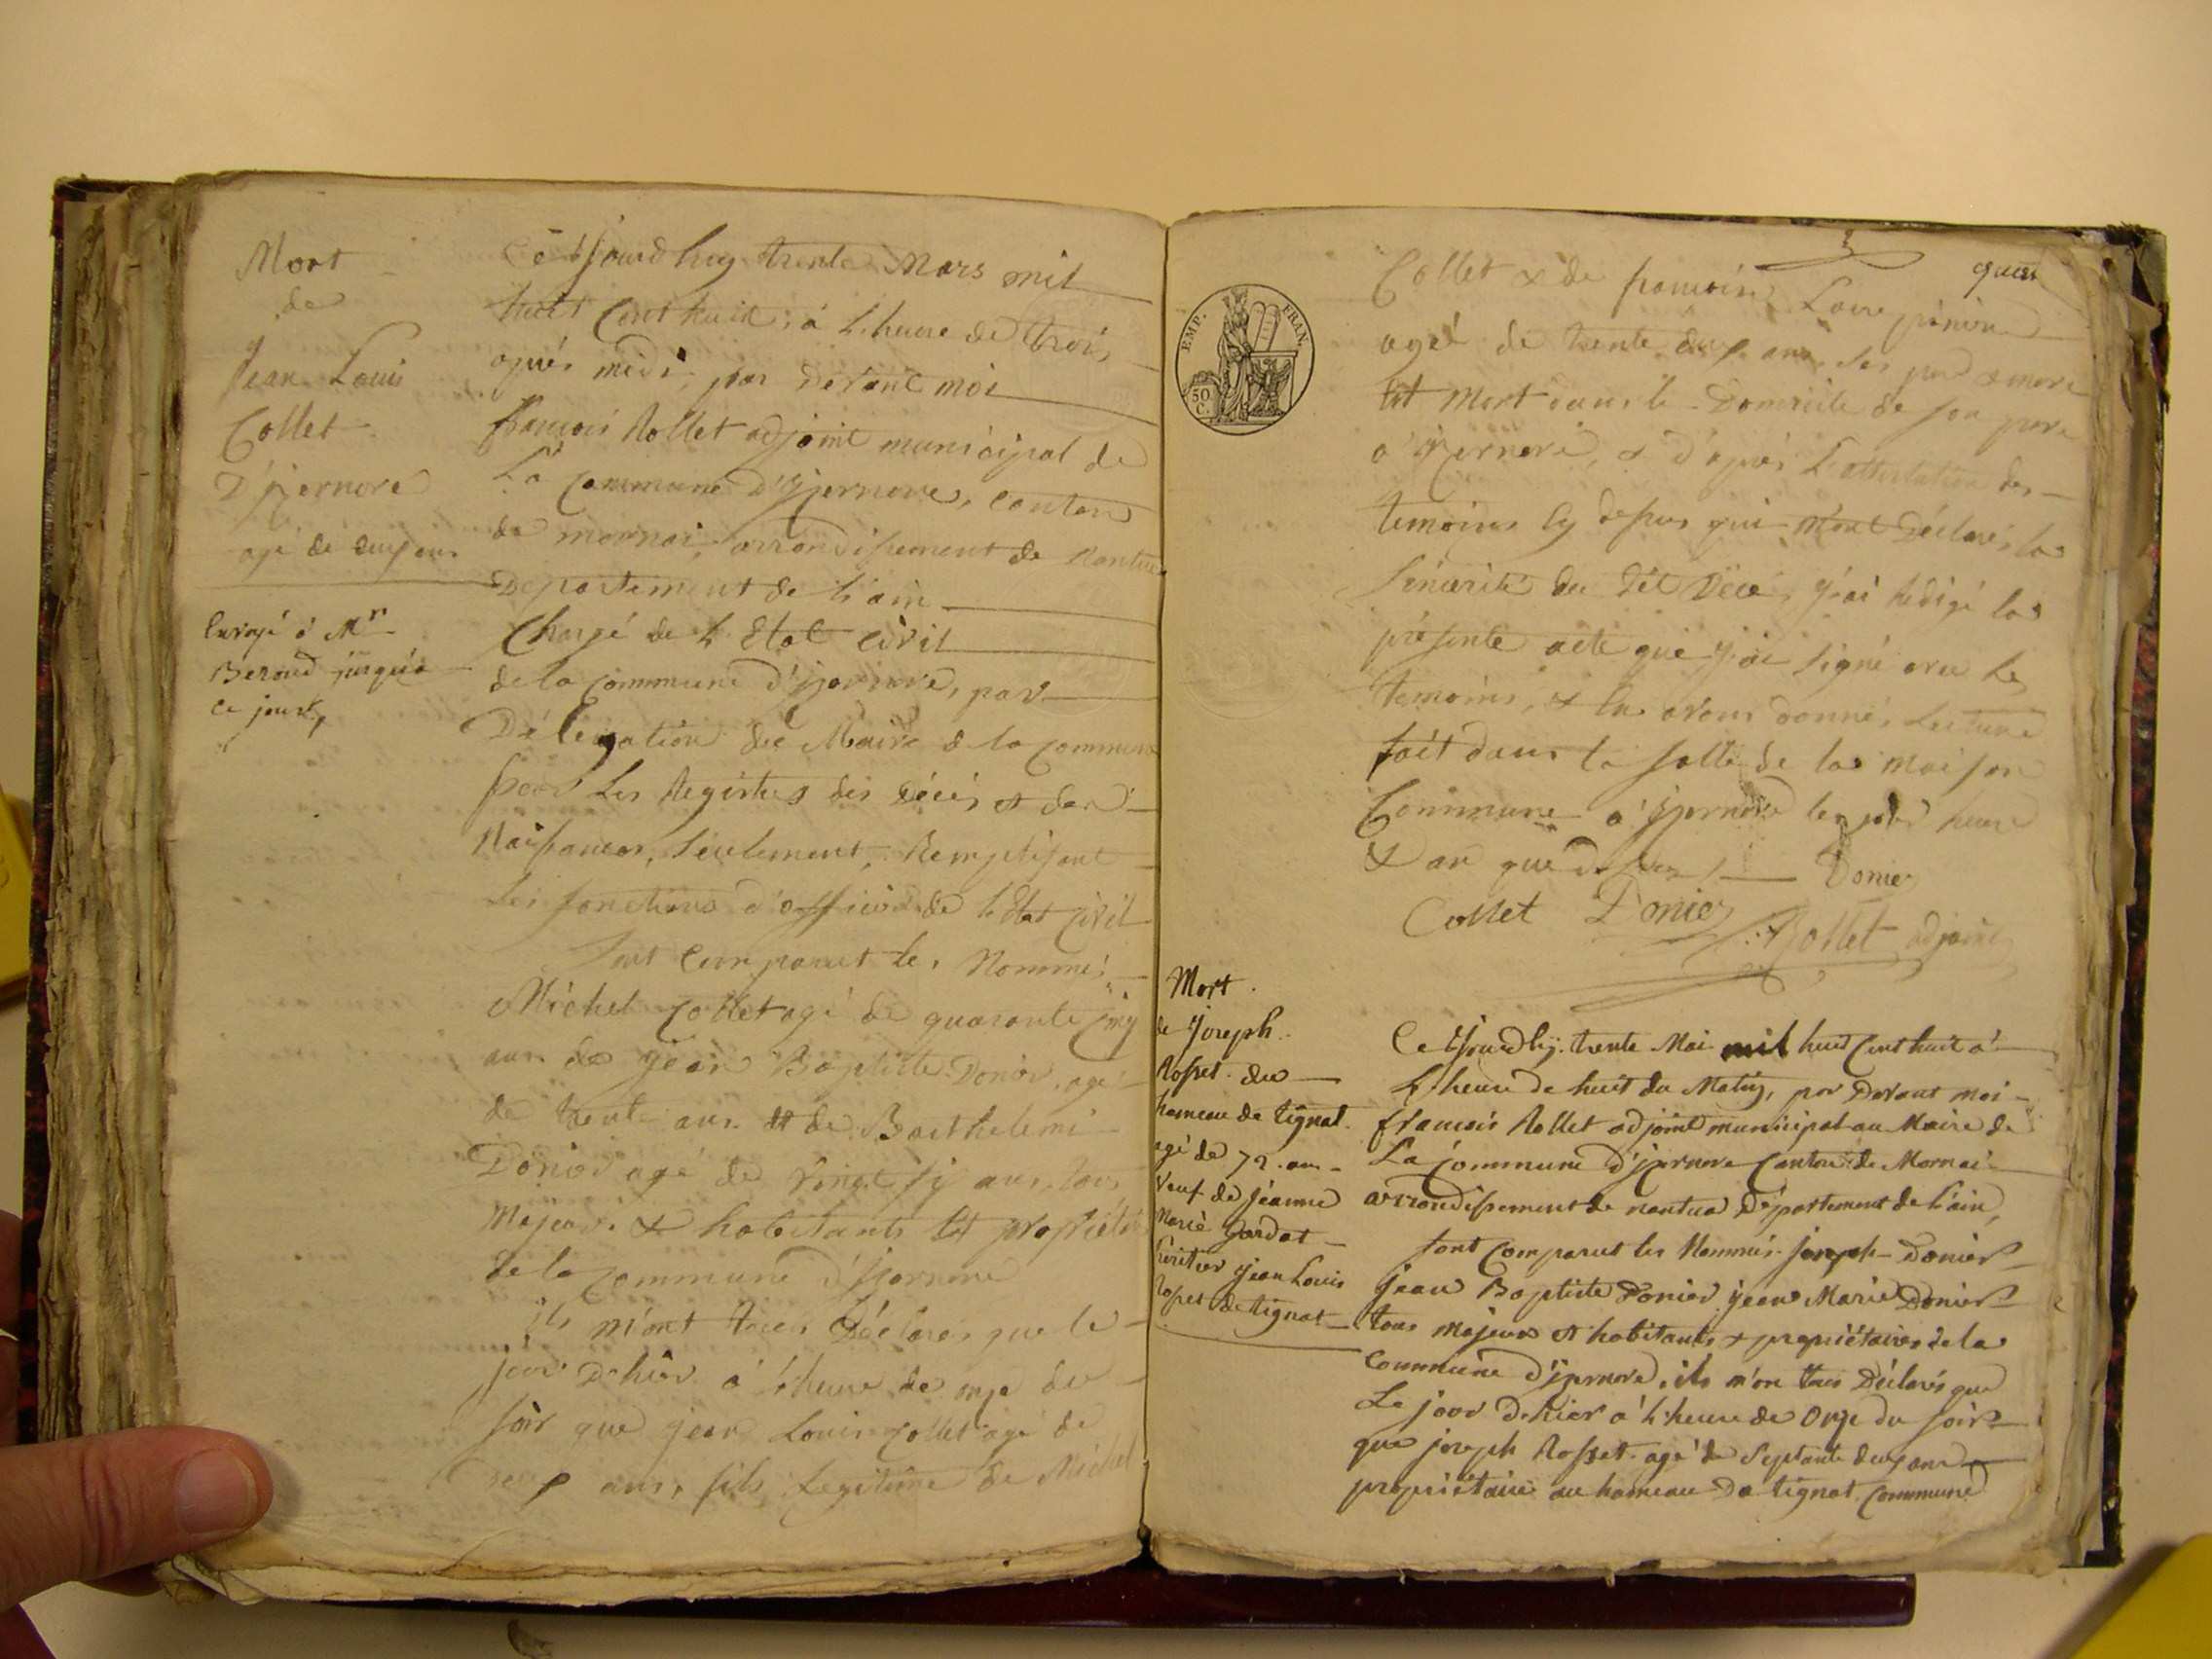 Mort
de
Jean Louis
Collet
D'jzernore
agé de deux ans
Envoyé à Mr
Beroud jusqu'a
ce jour
Cejourdhuy trente Mars mil
huit Cent huit, à L'heure de trois
après midi, par devant moi
françois Rollet adjoint municipal de
La Commune d'jzernore, canton
de mornai, arrondissement de Nantua
Departement de L'ain
Chargé de L'Etat Civil
de la Commune d'jzernore, par
Délégation du Maire de la Commune
pour Les Registres des Décés et des
Naissances, seulement, Remplissant
les fonctions d'officier de l'Etat Civil
Sont Comparut les Nommés
Michel Collet agé de quarante cinq
ans de jean Baptiste Donier, agé
de trente ans et de Barthelemi
Donier agé de vingt six ans, tous
Majeurs & habitants et propriétaires
de la Commune d'jzernore
ils m'ont tous Déclarés que le
jour D'hier à l'heure de onze du
soir que jean Louis Collet agé de
deux ans, fils Legitime de Michel
EMP. FRAN.
50 C.
Collet & de
agé de trente deux ans, ses pere & mere
est Mort dans le Domicile de son pere
a jzernore, & d'après L'attestation des
temoins Cy dessus qui m'ont Déclarés la
Sincerité du dit Décé, j'ai redigé la
présente acte que j'ai signé avec les
temoins, & leur avons donnés Lecture
fait dans la salle de la maison
Commune à jzernore les jour heure
& an que dessus Donier
Collet Donier
Rollet adjoint
Mort
de joseph
Rosset du
hameau de tignat
agé de 72 ans
veuf de jeanne
Marie Gardat
heritier jean Louis
Rosset de tignat
Cejourdhuy trente Mai mil huit Cent huit à
L'heure de huit du Matin, par Devant moi
françois Rollet adjoint municipal au Maire de
La Commune d'jzernore Canton de Mornai
arrondissement de nantua Département de L'ain,
sont Comparut les Nommés joseph Donier
jean Baptiste Donier jean Marie Donier
tous majeurs et habitants & propriétaires de la
Commune d'jzernore, ils m'on tous Déclarés que
Le jour D'hier à L'heure de onze du soir
que joseph Rosset agé de Septante deux ans
propriétaire au hameau De tignat Commune